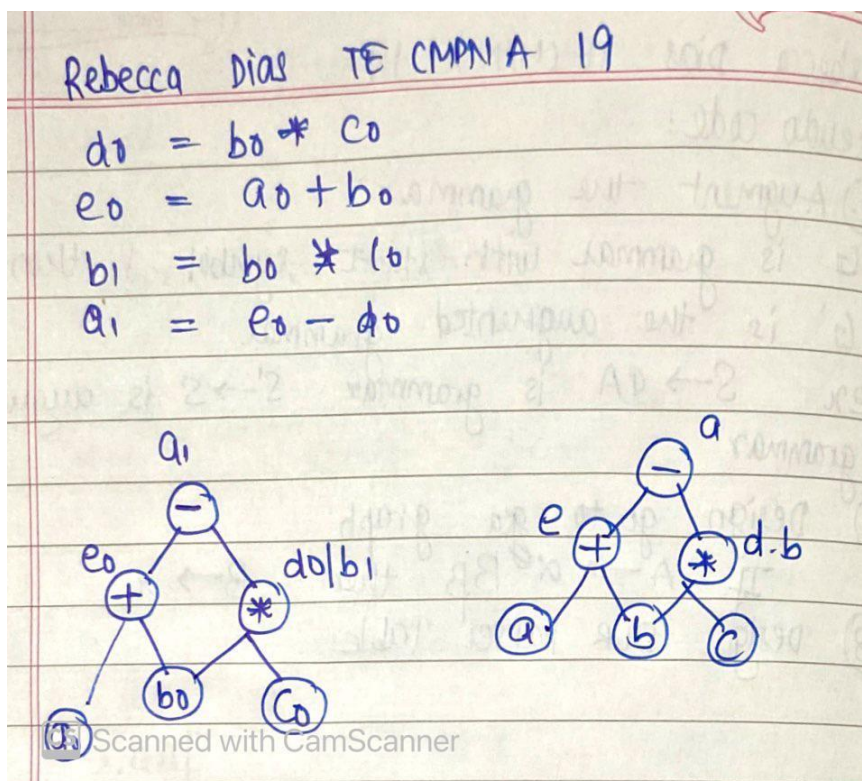 Rebecca Dias TE CMPN A 19
d0 = b0 * c0
e0 = a0 + b0
b1 = b0 * c0
a1 = e0 - d0
a1
-
e0
+
d0/b1
*
b0
c0
a
-
e
+
d.b
*
a
b
c
Scanned with CamScanner